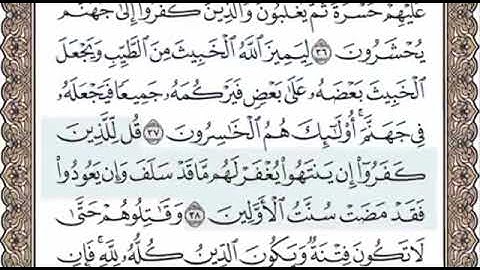 عَلَيْهِمْ حَسْرَةً ثُمَّ يُغْلَبُونَ وَالَّذِينَ كَفَرُوا إِلَىٰ جَهَنَّمَ
يُحْشَرُونَ ٣٦ لِيَمِيزَ اللَّهُ الْخَبِيثَ مِنَ الطَّيِّبِ وَيَجْعَلَ
الْخَبِيثَ بَعْضَهُ عَلَىٰ بَعْضٍ فَيَرْكُمَهُ جَمِيعًا فَيَجْعَلَهُ
فِي جَهَنَّمَ أُولَٰئِكَ هُمُ الْخَاسِرُونَ ٣٧ قُل لِّلَّذِينَ
كَفَرُوا إِن يَنتَهُوا يُغْفَرْ لَهُم مَّا قَدْ سَلَفَ وَإِن يَعُودُوا
فَقَدْ مَضَتْ سُنَّتُ الْأَوَّلِينَ ٣٨ وَقَاتِلُوهُمْ حَتَّىٰ
لَا تَكُونَ فِتْنَةٌ وَيَكُونَ الدِّينُ كُلُّهُ لِلَّهِ فَإِنِ